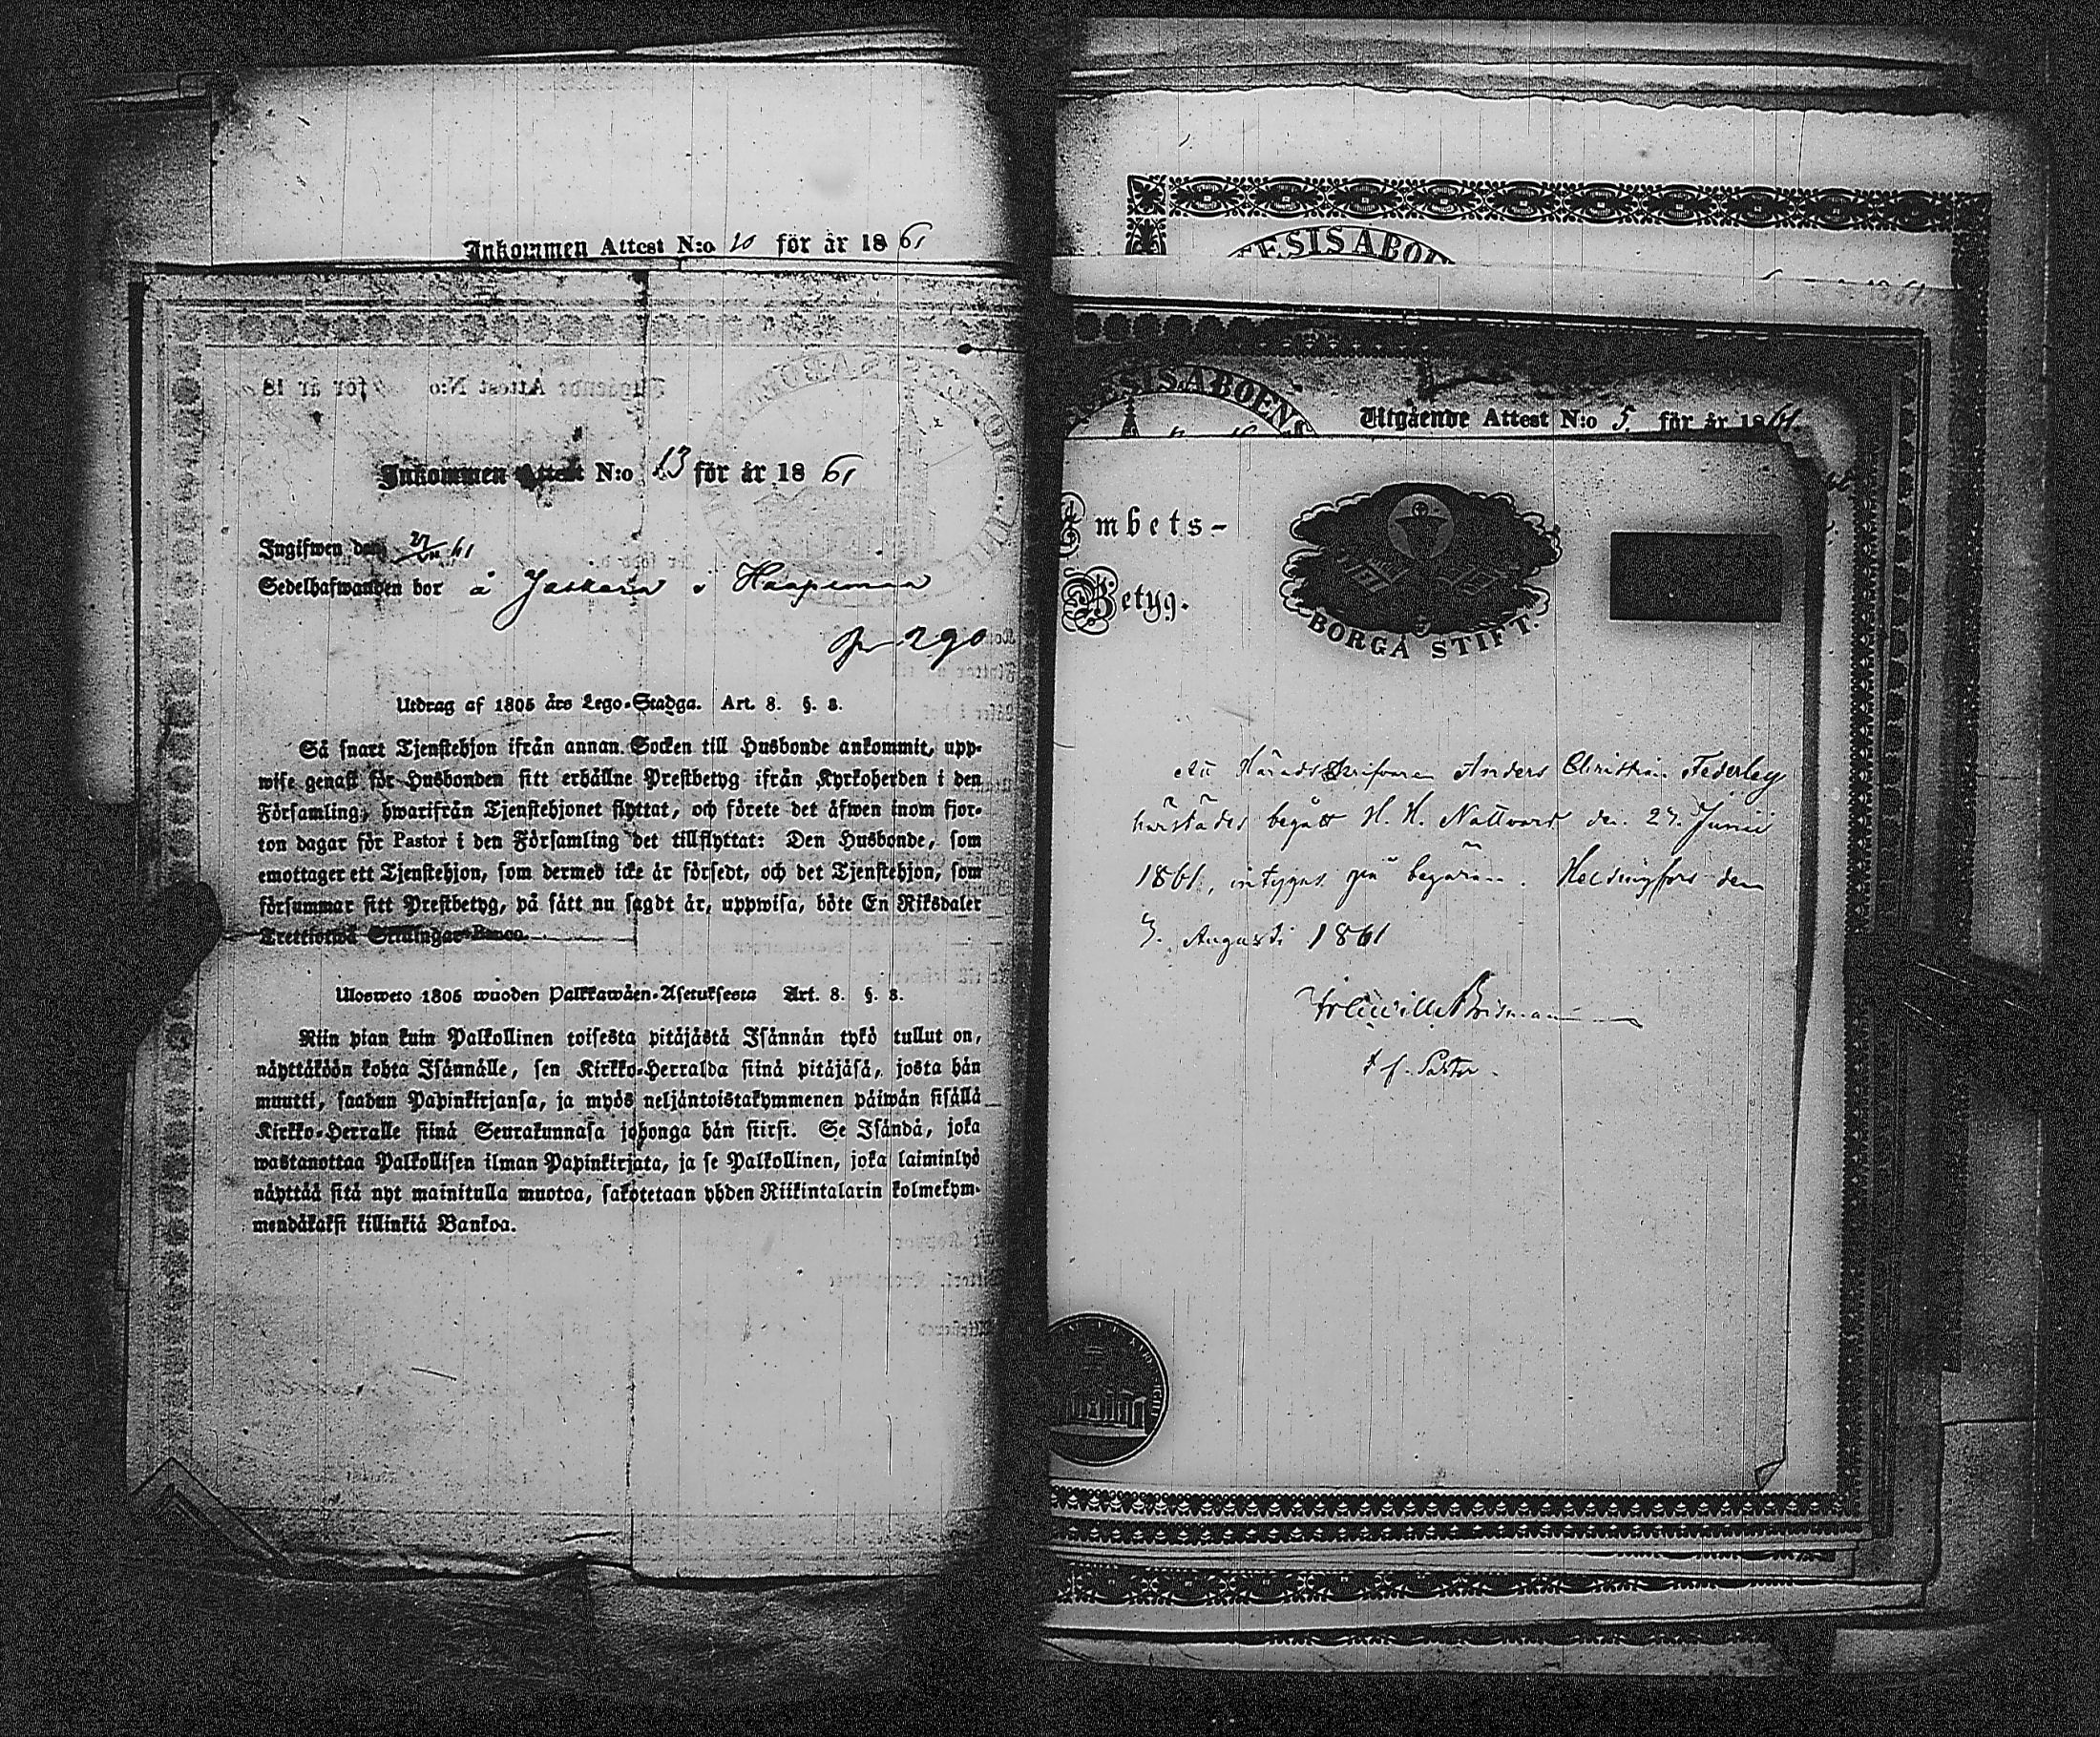 Inkommen Attest N:o 10 för år 1861
Inkommen Attest N:o 13 för år 1861
Ingifwen den 61
Sedelhafwanden bor å
290
Utdrag af 1805 års Lego-Stadga. Art. 8. §. 8.
Så snart Tjenstehjon ifrån annan Socken till Husbonde ankommit, upp-
wise genast för Husbonden sitt erhållne Prestbetyg ifrån Kyrkoherden i den
Församling, hwarifrån Tjenstehjonet flyttat, och förete det äfwen inom fjor-
ton dagar för Pastor i den Församling det tillflyttat: Den Husbonde, som
emottager ett Tjenstehjon, som dermed icke är försedt, och det Tjenstehjon, som
försummar sitt Prestbetyg, på sätt nu sagdt är, uppwisa, böte En Riksdaler
Trettiotwå Skillingar Banco.
Ulosweto 1805 wuoden Palkkawäen-Asetuksesta Art. 8. §. 8.
Niin pian kuin Palkollinen toisesta pitäjästä Isännän tykö tullut on,
näyttäköön kohta Isännälle, sen Kirkko-Herralda siinä pitäjäsä, josta hän
muutti, saadun Papinkirjansa, ja myös neljäntoistakymmenen päiwän sisällä
Kirkko-Herralle siinä Seurakunnasa johonga hän siirsi. Se Isändä, joka
wastanottaa Palkollisen ilman Papinkirjata, ja se Palkollinen, joka laiminlyö
näyttää sitä nyt mainitulla muotoa, sakotetaan yhden Riikintalarin kolmekym-
mendäkaksi killinkiä Bankoa.
ESIS ABOE
1861
ESIS ABOEN
Utgående Attest N:o 5. för år 1861.
Ambets-
Betyg.
BORGÅ STIFT.
Att Häradsskrifvaren Anders Christian Federley
härstädes begått H. H. Nattvard den 27. Junii
1861, intygas på begäran. Helsingfors den
3. Augusti 1861
Brisman
t. f. Pastor.